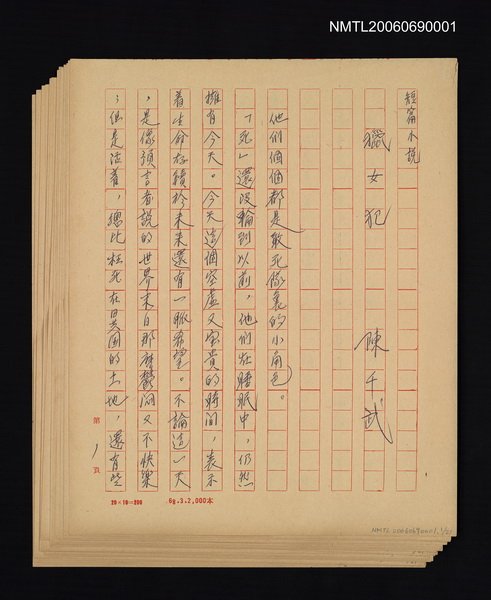 NMTL20060690001
短篇小說
獵女犯　陳千武
他們個個都是敢死隊裏的小角色。
「死」還沒輪到以前，他們在睡眠中，仍然
擁有今天。今天這個空虛又寶貴的時間，表示
着生命存續於未來還有一脈希望。不論這一天
，是像預言者說的世界末日那麼鬱悶又不快樂
；但是活着，總比枉死在異國的土地，還有些
第 1 頁
20×10=200
69.3.2,000本
NMTL20060690001. 1/21